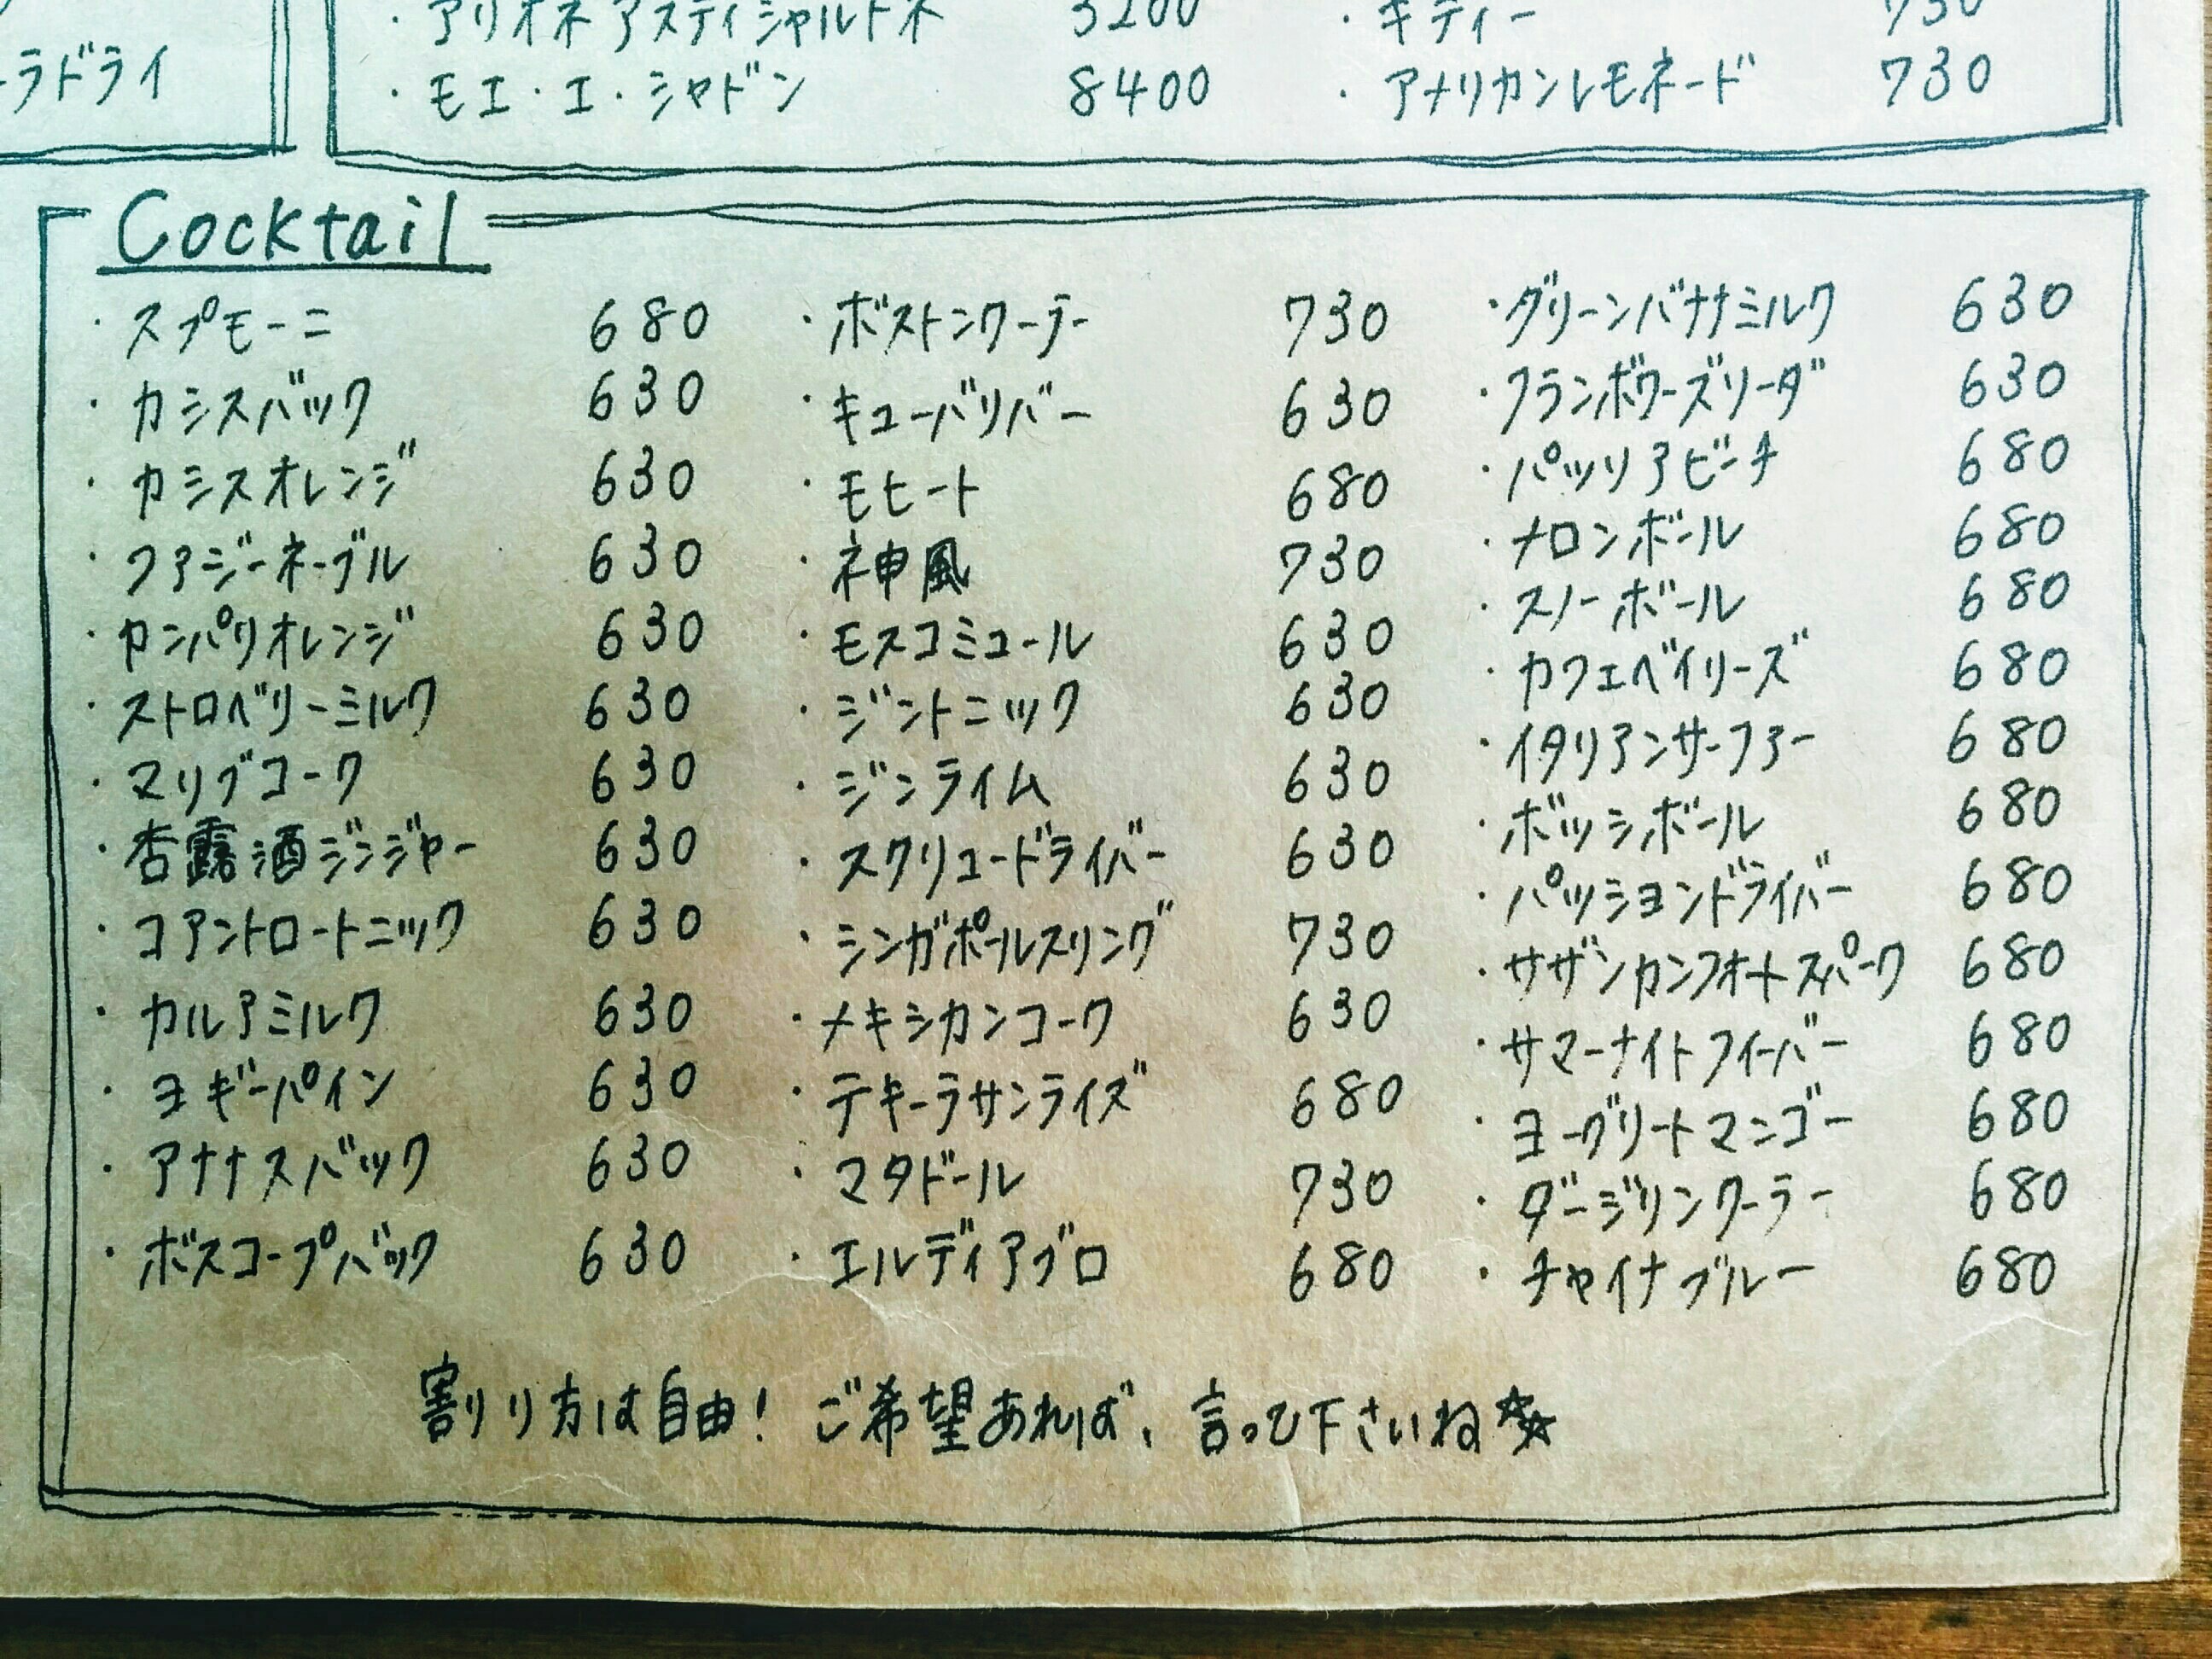 ラドライ
・アリオネアスティシャルドネ 3200 ・キティー 730
・モエ・エ・シャドン 8400 ・アメリカンレモネード 730
Cocktail
・スプモーニ 680
・カシスバック 630
・カシスオレンジ 630
・ファジーネーブル 630
・カンパリオレンジ 630
・ストロベリーミルク 630
・マリブコーク 630
・杏露酒ジンジャー 630
・コアントロートニック 630
・カルアミルク 630
・ヨギーパイン 630
・アナナスバック 630
・ボスコープバック 630
・ボストンクーラー 730
・キューバリバー 630
・モヒート 680
・神風 730
・モスコミュール 630
・ジントニック 630
・ジンライム 630
・スクリュードライバー 630
・シンガポールスリング 730
・メキシカンコーク 630
・テキーラサンライズ 680
・マタドール 730
・エルディアブロ 680
・グリーンバナナミルク 630
・フランボワーズソーダ 630
・パッソアピーチ 680
・メロンボール 680
・スノーボール 680
・カフェベイリーズ 680
・イタリアンサーファー 680
・ボッシボール 680
・パッションドライバー 680
・サザンカンフォートスパーク 680
・サマーナイトフィーバー 680
・ヨーグリートマンゴー 680
・ダージリンクーラー 680
・チャイナブルー 680
割り方は自由！ご希望あれば、言って下さいね☆☆